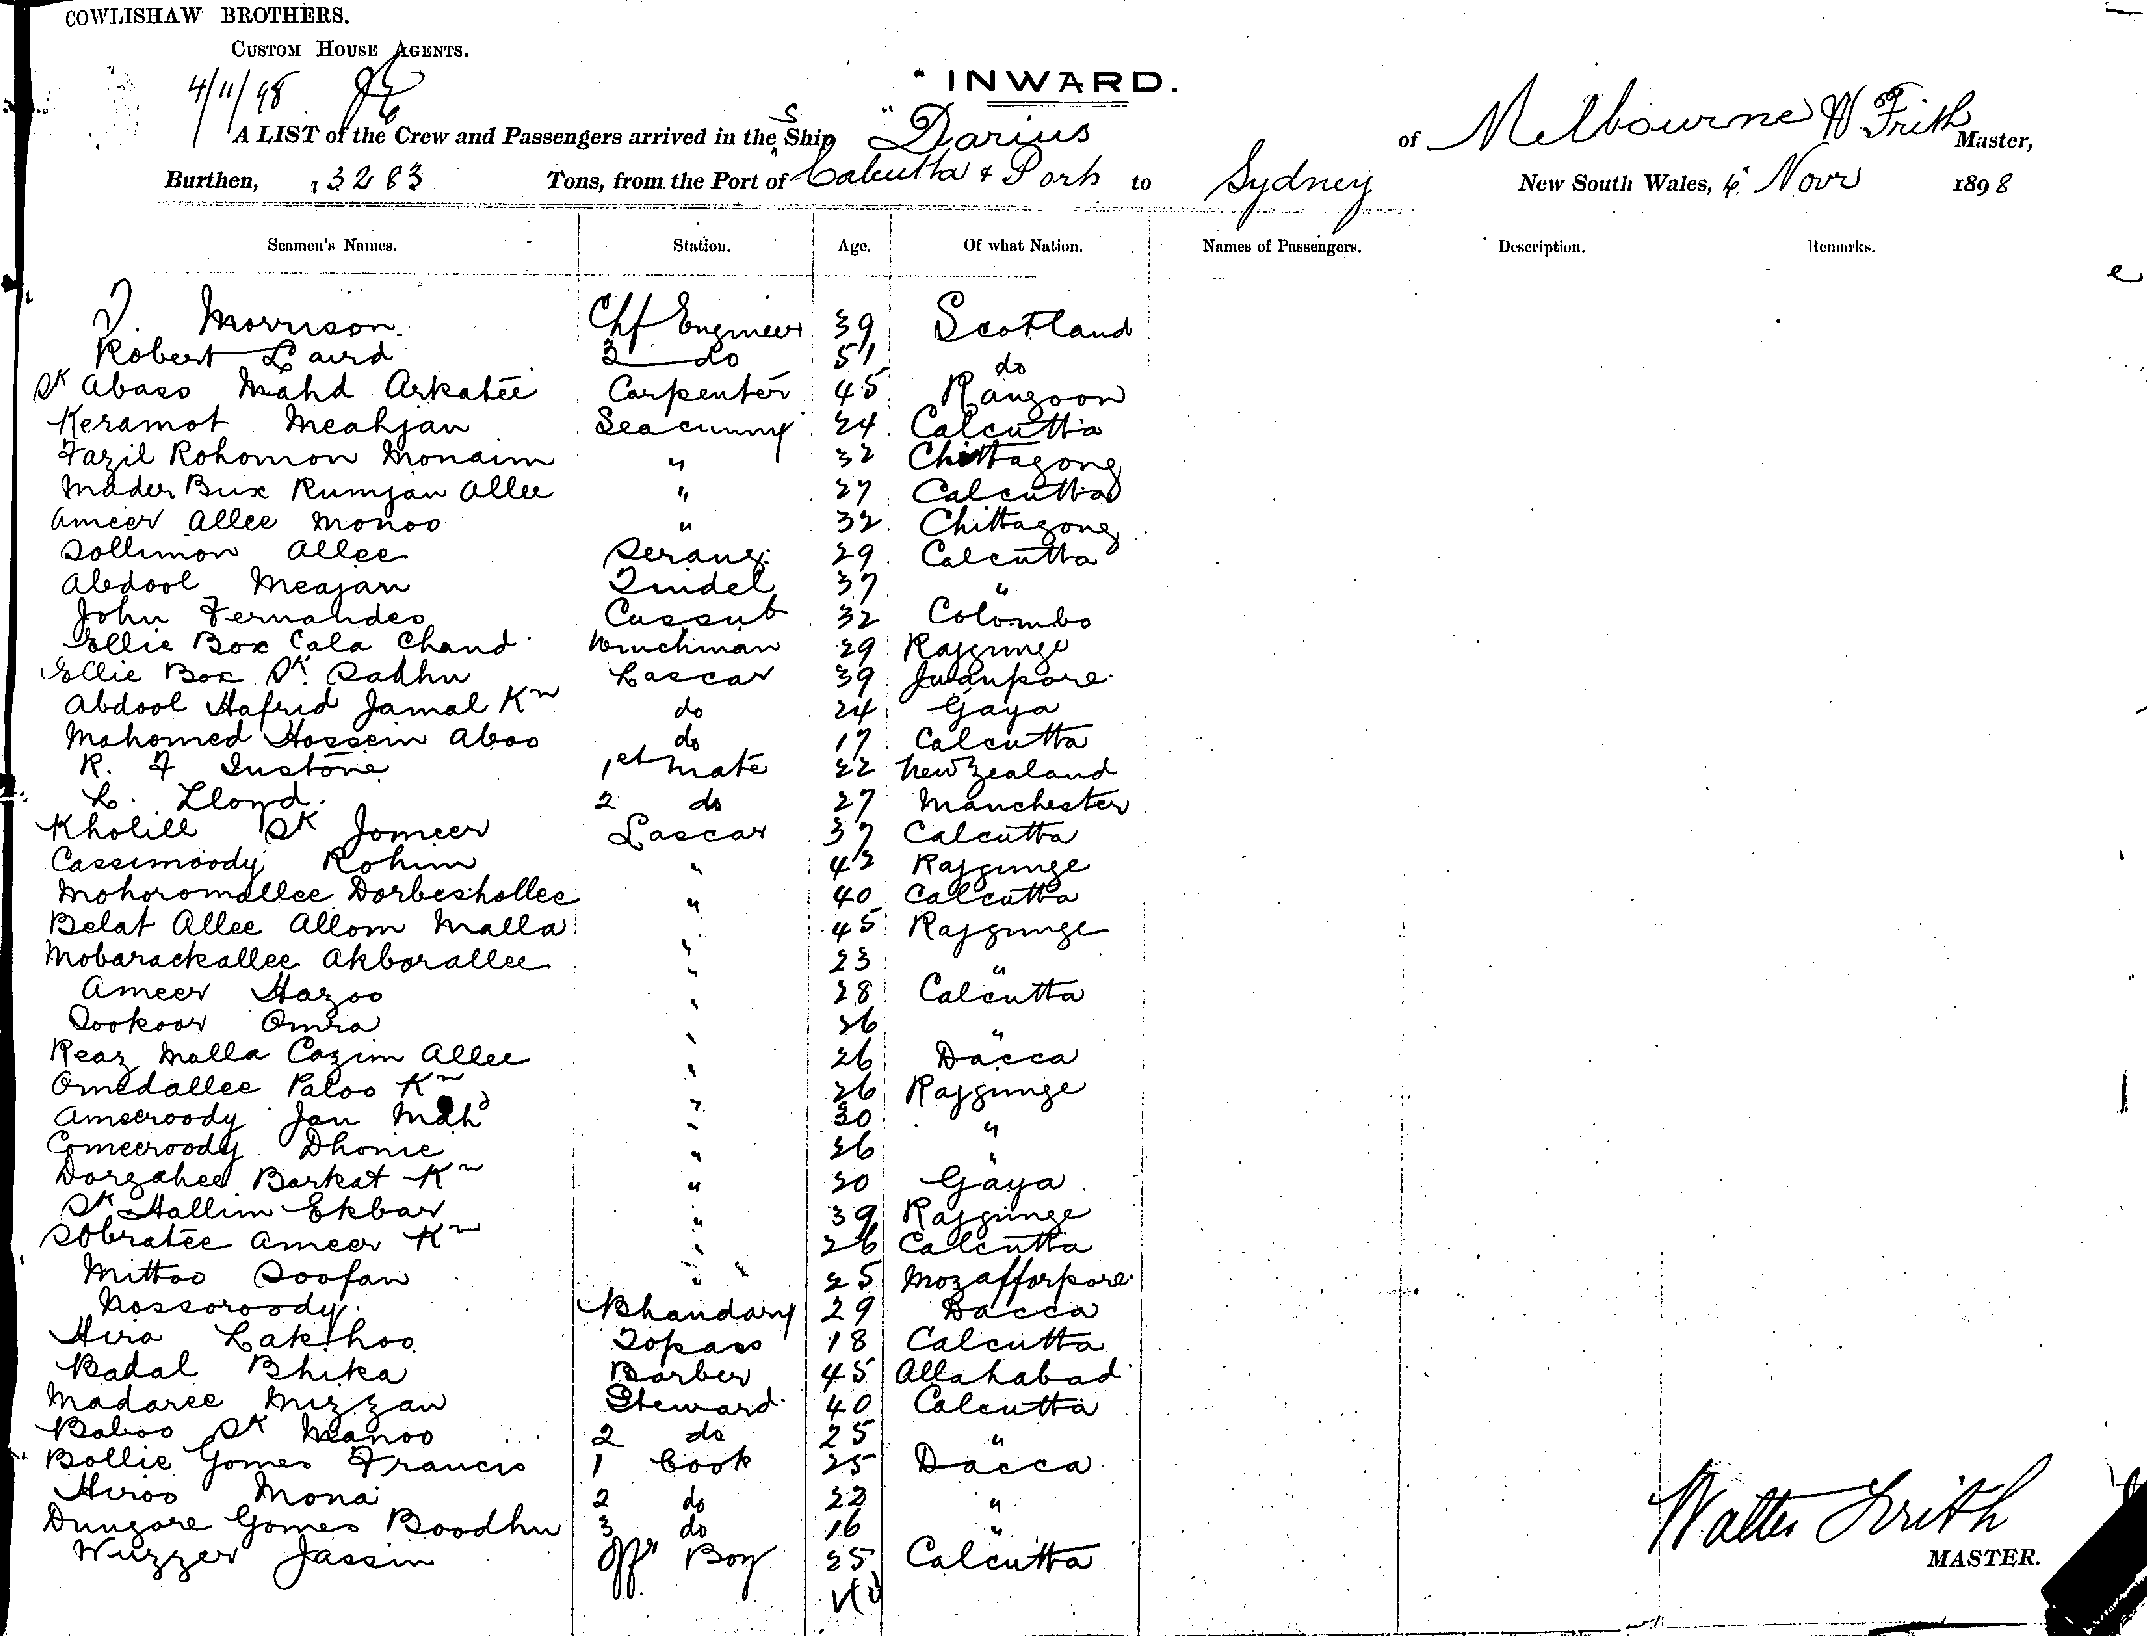 COWLISHAW BROTHERS.
CUSTOM HOUSE AGENTS.
4/11/98
INWARD.
A LIST of the Crew and Passengers arrived in the S Ship "Darius of Melbourne W Frith Master,
Burthen, 3283 Tons, from the Port of Calcutta & Ports to Sydney New South Wales, Novr 1898
Seamen's Names. Station. Age. Of what Nation. Names of Passengers. Description. Remarks.
Morrison Chf Engineer 39 Scotland
Robert Laird do 51 do
Sk Abass Mahd Arkatee Carpenter 45 Rangoon
Keramot Meahjan Seacunny 24 Calcutta
Fazil Rohomon Monaim " 32 Chittagong
Mader Bux Rumjan Allee " 27 Calcutta
Ameer Allee Monoo " 32 Chittagong
Sollimon Allee Serang 29 Calcutta
Abdool Meajan Tindel 37 "
John Fernandes Cassub 32 Colombo
Ellie Box Cala Chand Winchman 29 Rajgunge
Ellie Box Sk. Sadhu Lascar 39
Abdool Hafrid Jamal Kn do 24 Gaya
Mahomed Hossein Aboo do 17 Calcutta
R. F Instone 1st Mate 22 New Zealand
L. Lloyd. 2 do 27 Manchester
Kholill Sk Jomeer Lascar 37 Calcutta
Cassimoody Rohim " 43 Rajgunge
Mohoromallee Dorbeshollee " 40 Calcutta
Belat Allee Allom Malla " 45 Rajgunge
Mobarackallee Akborallee " 23 "
Ameer Hazoo " 28 Calcutta
Sookoor Omra " 36 "
Reaz Malla Cazim Allee " 26 Dacca
Omedallee Paloo Kn " 26 Rajgunge
Ameeroody Jan Mahd " 30 "
Comeeroody Dhonie " 26 "
Dorgahee Barkat Kn " 30 Gaya
Sk Hallim Ekbar " 39 Rajgunge
Sobratee Ameer Kn " 26 Calcutta
Mittoo Soofan " 25 Mozafforpore
Nossoroody. Bhandary 29 Dacca
Hira Lakhoo Topass 18 Calcutta
Badal Bhika Barber 45 Allahabad
Madaree Mizzan Steward 40 Calcutta
Baboo Sk Manoo 2 do 25 "
Bollie Gomes Francis 1 Cook 25 Dacca
Hiroo Mona 2 do 22 "
Dungore Gomes Boodhu 3 do 16 "
Wuzzer Jassim Offrs Boy 25 Calcutta
Walter Frith
MASTER.